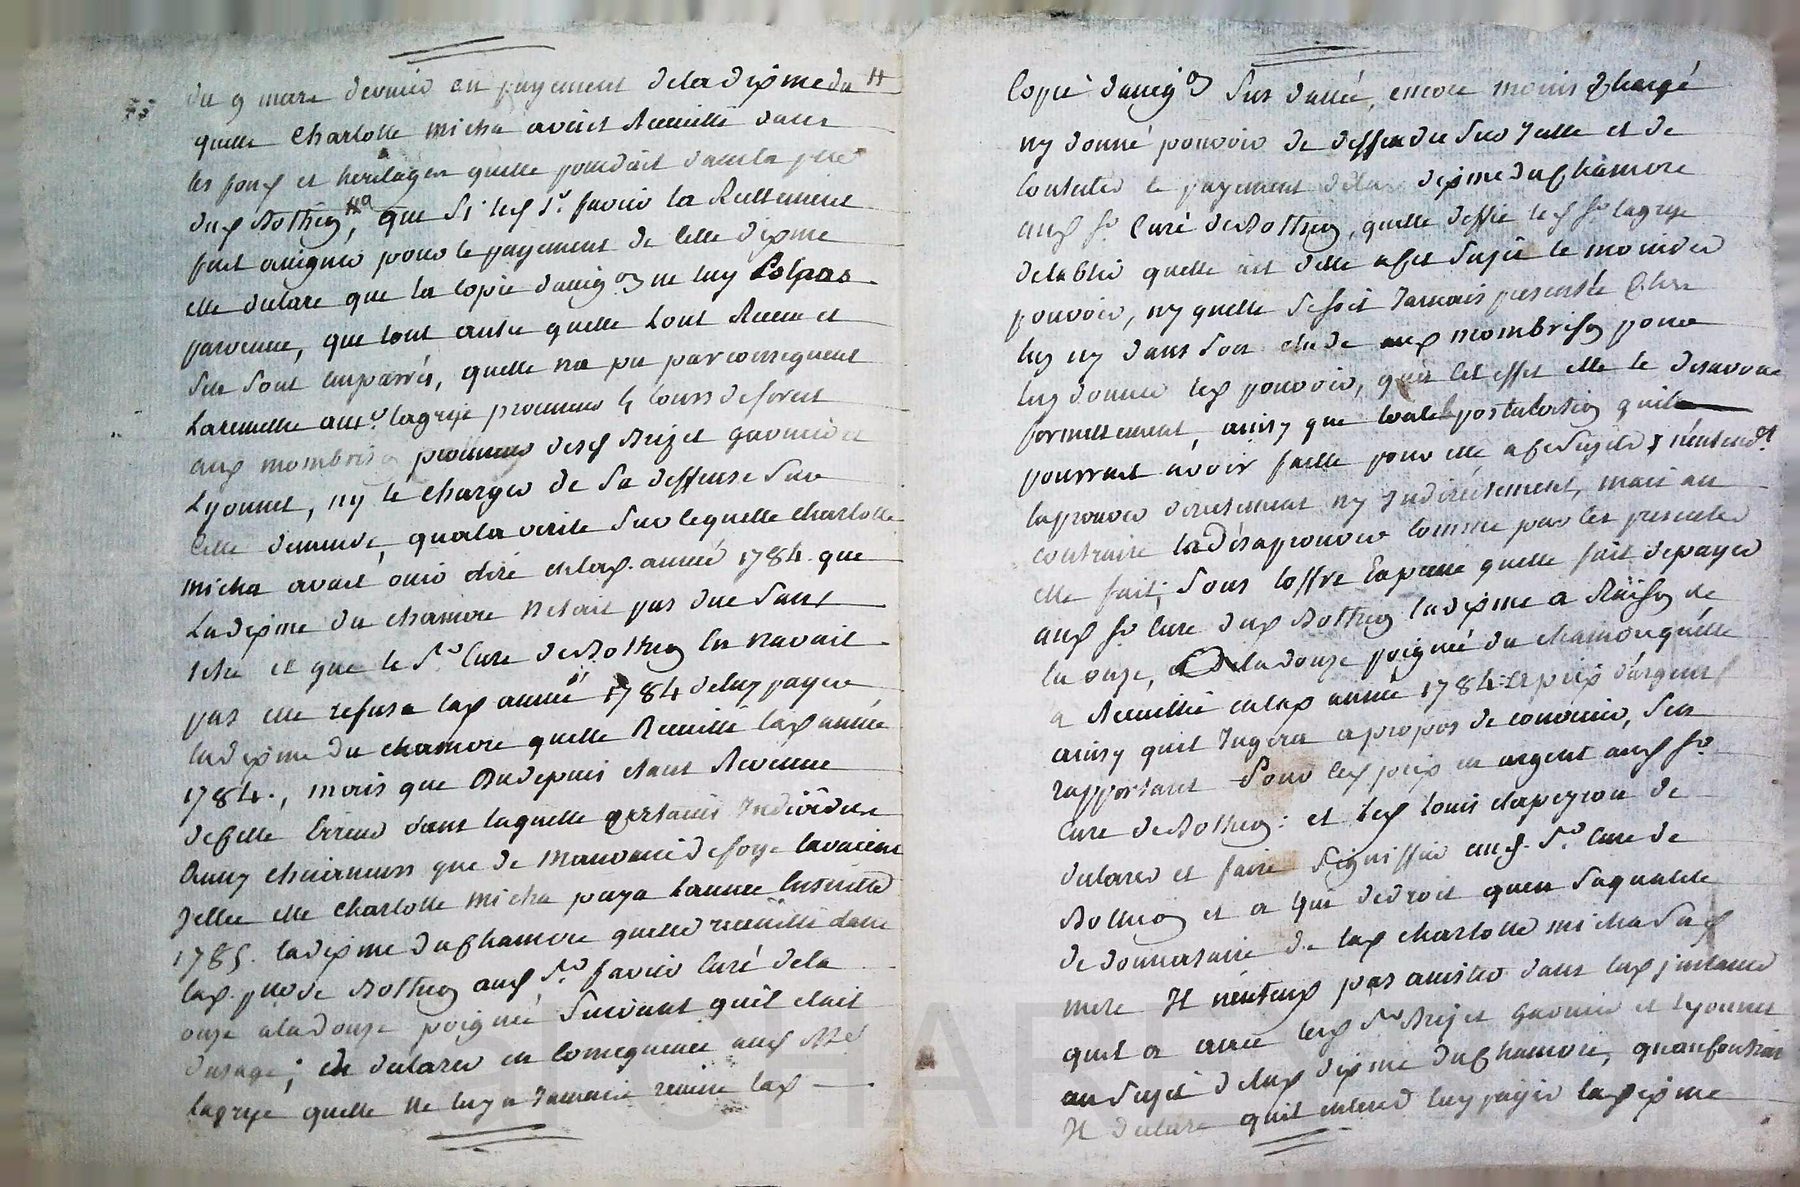 du 9 mars dernier en payement de la dixme du #
quelle Charlotte micha avait Recueilli dans
les fonds et heritages quelle possedait dans la psse
dud Bothéon, que si led sr. favier la Reellement
fait assigner pour le payement de cette dixme
elle declare que la copie dassigon ne luy Est pas
parvenue, que tout autre quelle Lont Receue et
sen sont emparrés, quelle na pu par consequent
La remettre au sr lagrye procureur es cours de forest
aud montbrison procureur desd Brizet garnier et
Lyonnet, ny le charger de sa deffense sur
cette demande, qua la verite sur ce quelle charlotte
micha avait oui dire en lad. année 1784. que
La dixme du chanvre Netait pas due sans
titre et que le sr Curé de Bothéon en navait
pas elle refusa lad année 1784 de luy payer
la dixme du chanvre quelle Recueilli lad année
1784., mais que Dudepuis etant Revenue
de cette Erreur dans laquelle certains Individus
aussy chicaneurs que de mauvaise foye lavaient
jettée elle Charlotte micha paya Lannée Ensuitte
1785. la dixme du chanvre quelle recueilli dans
lad. psse de Bothéon aud sr. favier Curé de la
onze a la douze poignée suivant quil etait
dusage; de declarer en consequence aud Me
lagrye quelle ne luy a Jamais remise lad
Copie dassigon sus dattée, encore moins chargé
ny donné pouvoir de deffendre sur Jcelle et de
contester le payement de la dixme du chanvre
aud sr. Curé de Bothéon, quelle deffie led sr lagrye
detablir quelle ait elle a cet sujet le moindre
pouvoir, ny quelle se soit Jamais presentée Chez
luy ny dans son etude aud montbrison pour
luy donner led pouvoir, qua cet effet elle le desavoue
formellement, ainsy que toute postulation quil
pourrait avoir faitte pour elle a ce sujet, nentendt
laprouver directement ny Indirectement, mais au
contraire la désaprouver comme par les presentes
elle fait; sous loffre Expresse quelle fait de payer
aud sr. Curé dud Bothéon la dixme a Raison de
la onze, a la douze poignée du chanvre quelle
a Recueillie en lad année 1784. Et prix dargent
ainsy quil Jugera a propos de convenir, sen
rapportant pour led prix en argent aud sr.
Curé de Bothéon: et led louis clapeyron de
declarer et faire signiffier aud. sr. Curé de
Bothéon et a qui de droit quen sa qualité
de donnataire de lad charlotte micha sad
mere Il nentend pas assister dans lad jnstance
quil a avec lesd srs Brizet garnier et lyonnet
au sujet de lad dixme du chanvre, quau contraire
Il declare quil entend luy payer lad dixme